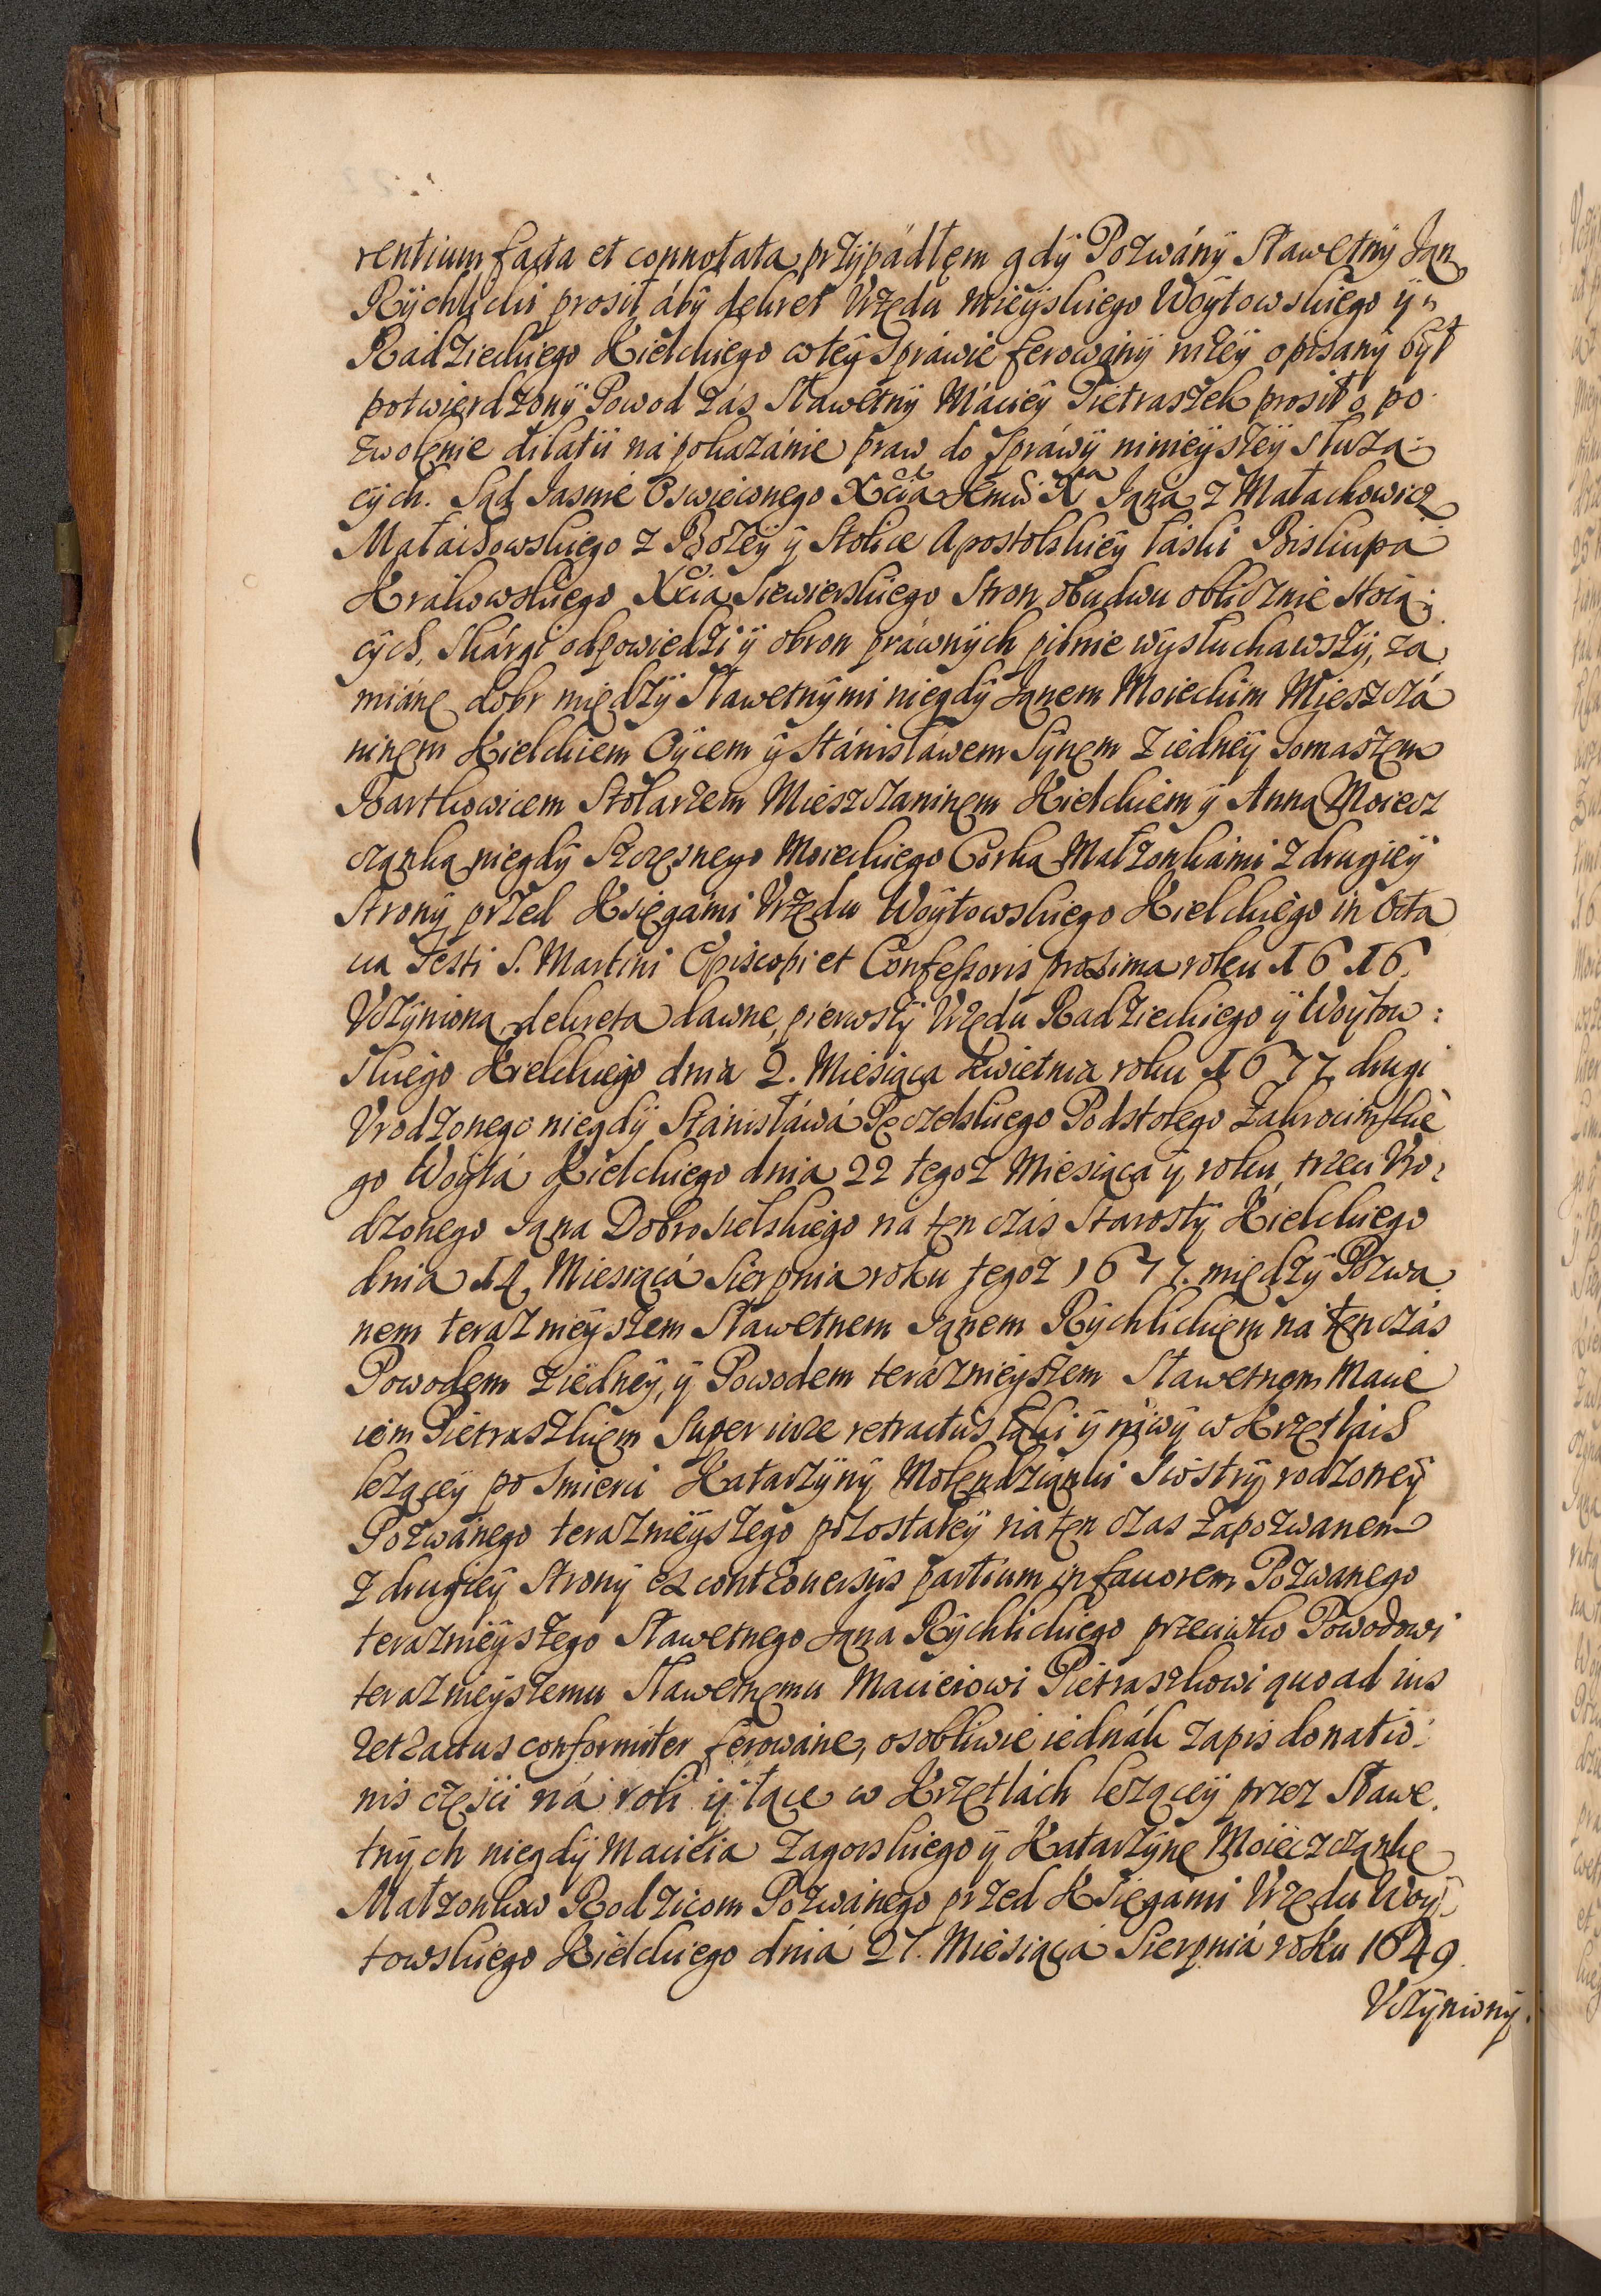 rentium facta et connotata przÿpadłem gdÿ Pozwánÿ Sławetnÿ Jan
Rÿchlicki prosił ábÿ dekret Vrzędu mieÿskiego Woÿtowskiego ÿ
Radzieckiego Kielckiego wteÿ Spráwie ferowánÿ niżeÿ opisanÿ bÿł
potwierdzonÿ Powod zás Sławetnÿ Mácieÿ Pietraszek prosił o po
zwolenie dilatii ná pokazánie praw do Spráwÿ ninieÿszeÿ służą:
cÿch. Sąd Jasnie Oswieconego Xcia Jana z Małachowic
Małachowskiego z Bożeÿ ÿ Stolice Apostolskieÿ łáski Biskupá
Krakowskiego Xcia Siewierskiego Stron obudwu oblicznie stoią:
cÿch, Skárgi odpowiedzi ÿ obron práwnÿch pilnie wÿsłuchawszÿ, za
miánę dobr międzÿ Sławetnÿmi niegdÿ Janem Moieckim Mieszczá
ninem Kielckiem Oÿcem ÿ Stánisłáwem Sÿnem z iedneÿ Tomaszem
Bartkowicem Stolarzem Mieszczaninem Kielckiem ÿ Anną Moiecz
czanką niegdÿ Szczęsnego Moieckiego Corką Małżonkámi z drugieÿ
Stronÿ przed Księgámi Vrzędu Woÿtowskiego Kielckiego in Octa
ua Festi S. Martini Episcopi et Confessoris proxima roku 1616.
Vczÿnioną dekreta dawne, pierwszÿ Vrzędu Radzieckiego ÿ Woÿtow:
skiego Kielckiego dnia 2. Miesiąca Kwietnia roku 1677 drugi
Vrodzonego niegdÿ Stánisłáwá Pęczelskiego Podstolego Zakrocimskie
go Woÿtá Kielckiego dnia 22 tegoz Miesiąca ÿ roku, trzeci Vro:
dzonego Jana Dobrosielskiego ná ten czás Starostÿ Kielckiego
dnia 14 Miesiącá Sierpnia roku tegoz 1677. międzÿ Pozwa
nem teraznieÿszem Sławetnem Janem Rÿchlickiem ná ten czás
Powodem z iedneÿ, ÿ Powodem teráznieÿszem Sławetnem Macie
iem Pietraszkiem Super iure retractus łąki ÿ niwÿ w Krzętlach
leżąceÿ po Smierci Katarzÿnÿ Molendzianki Siostrÿ rodzoneÿ
Pozwánego teraznieÿszego pozostałeÿ ná ten czas Zapozwanem
z drugieÿ Stronÿ ex controuersÿs partium in fauorem Pozwanego
teraznieÿszego Sławetnego Jana Rÿchlickiego przeciwko Powodowi
teraznieÿszemu Sławetnemu Macieiowi Pietraszkowi quoad ius
retractus conformiter ferowáne, osobliwie iednák zapis donatio:
nis częsci ná roli ÿ łące w Krzętlách leżąceÿ przez Sławe
tnÿch niegdÿ Macieia Zagorskiego ÿ Katarzÿnę Moieczczankę
Małzonkow Rodzicom Pozwánego przed Ksiegámi Vrzędu Woÿ
towskiego Kielckiego dniá 27. Miesiącá Sierpniá roku 1649.
Vczÿnionÿ.